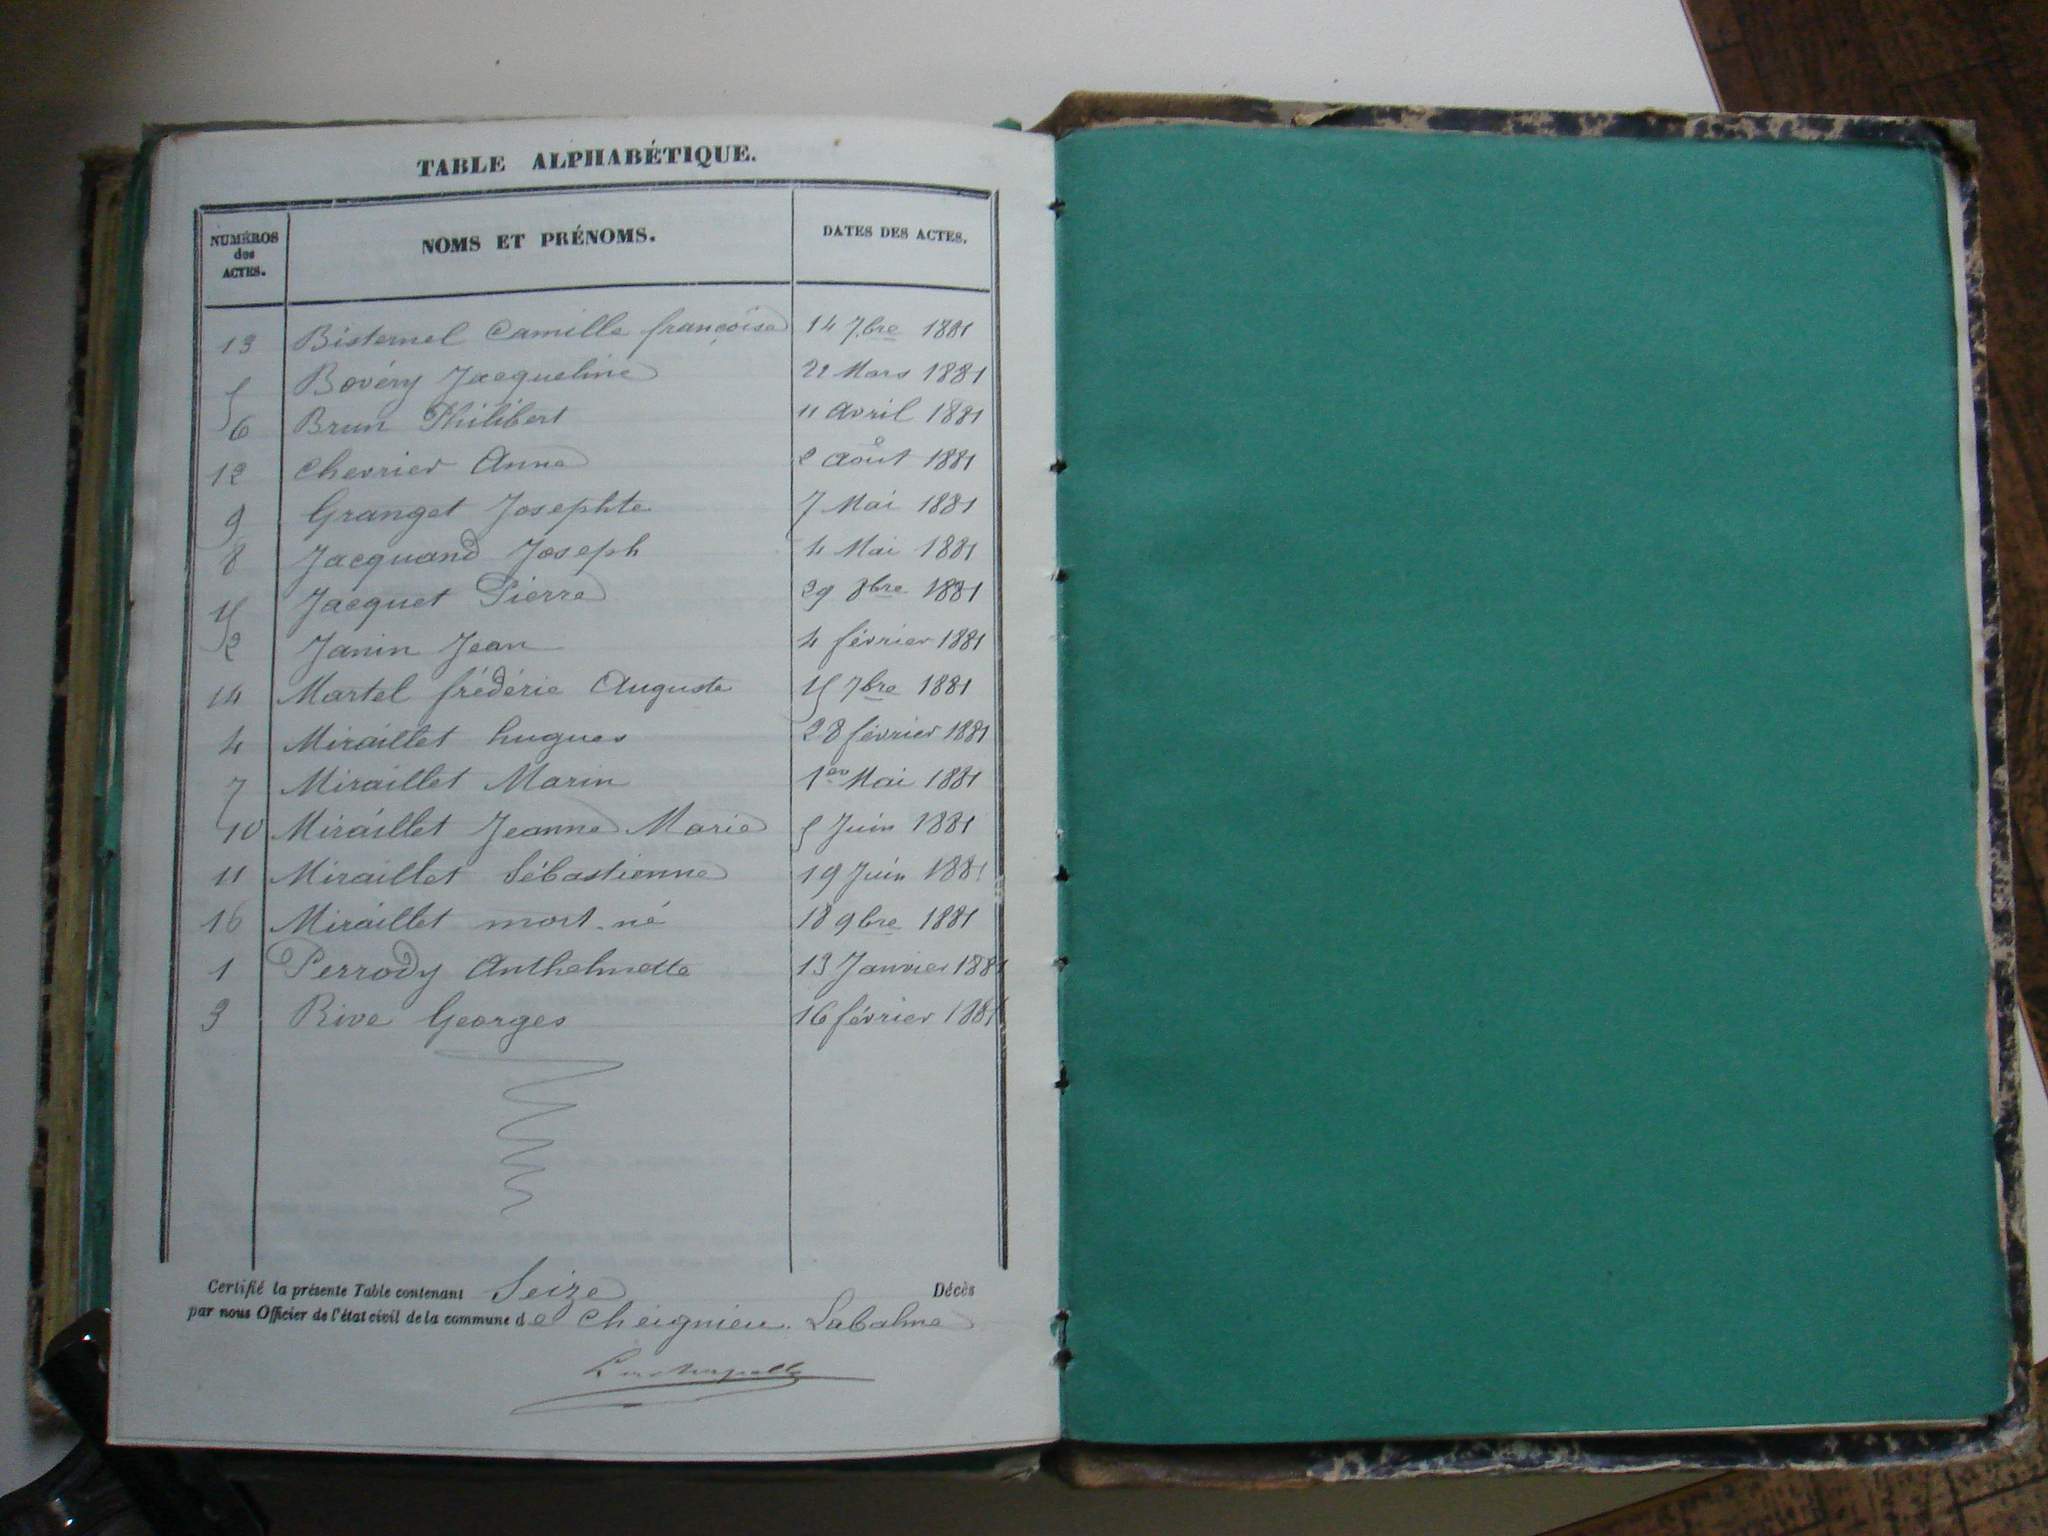 TABLE ALPHABÉTIQUE.
NUMÉROS des ACTES. NOMS ET PRÉNOMS. DATES DES ACTES.
13 Bisternel Camille françoise 14 7bre 1881
5 Bovéry Jacqueline 21 Mars 1881
6 Brun Philibert 11 avril 1881
12 Chevrier Anna 2 août 1881
9 Granget Josephte 7 Mai 1881
8 Jacquand Joseph 4 Mai 1881
15 Jacquet Pierre 29 8bre 1881
2 Janin Jean 4 février 1881
14 Martel frédéric Auguste 15 7bre 1881
4 Miraillet hugues 28 février 1881
7 Miraillet Marin 1er Mai 1881
10 Miraillet Jeanne Marie 5 Juin 1881
11 Miraillet Sébastienne 19 Juin 1881
16 Miraillet mort-né 18 9bre 1881
1 Perrody Anthelmette 13 Janvier 1881
3 Rive Georges 16 février 1881
Certifié la présente Table contenant Seize Décès
par nous Officier de l'état civil de la commune de Cheignieu. Labalme